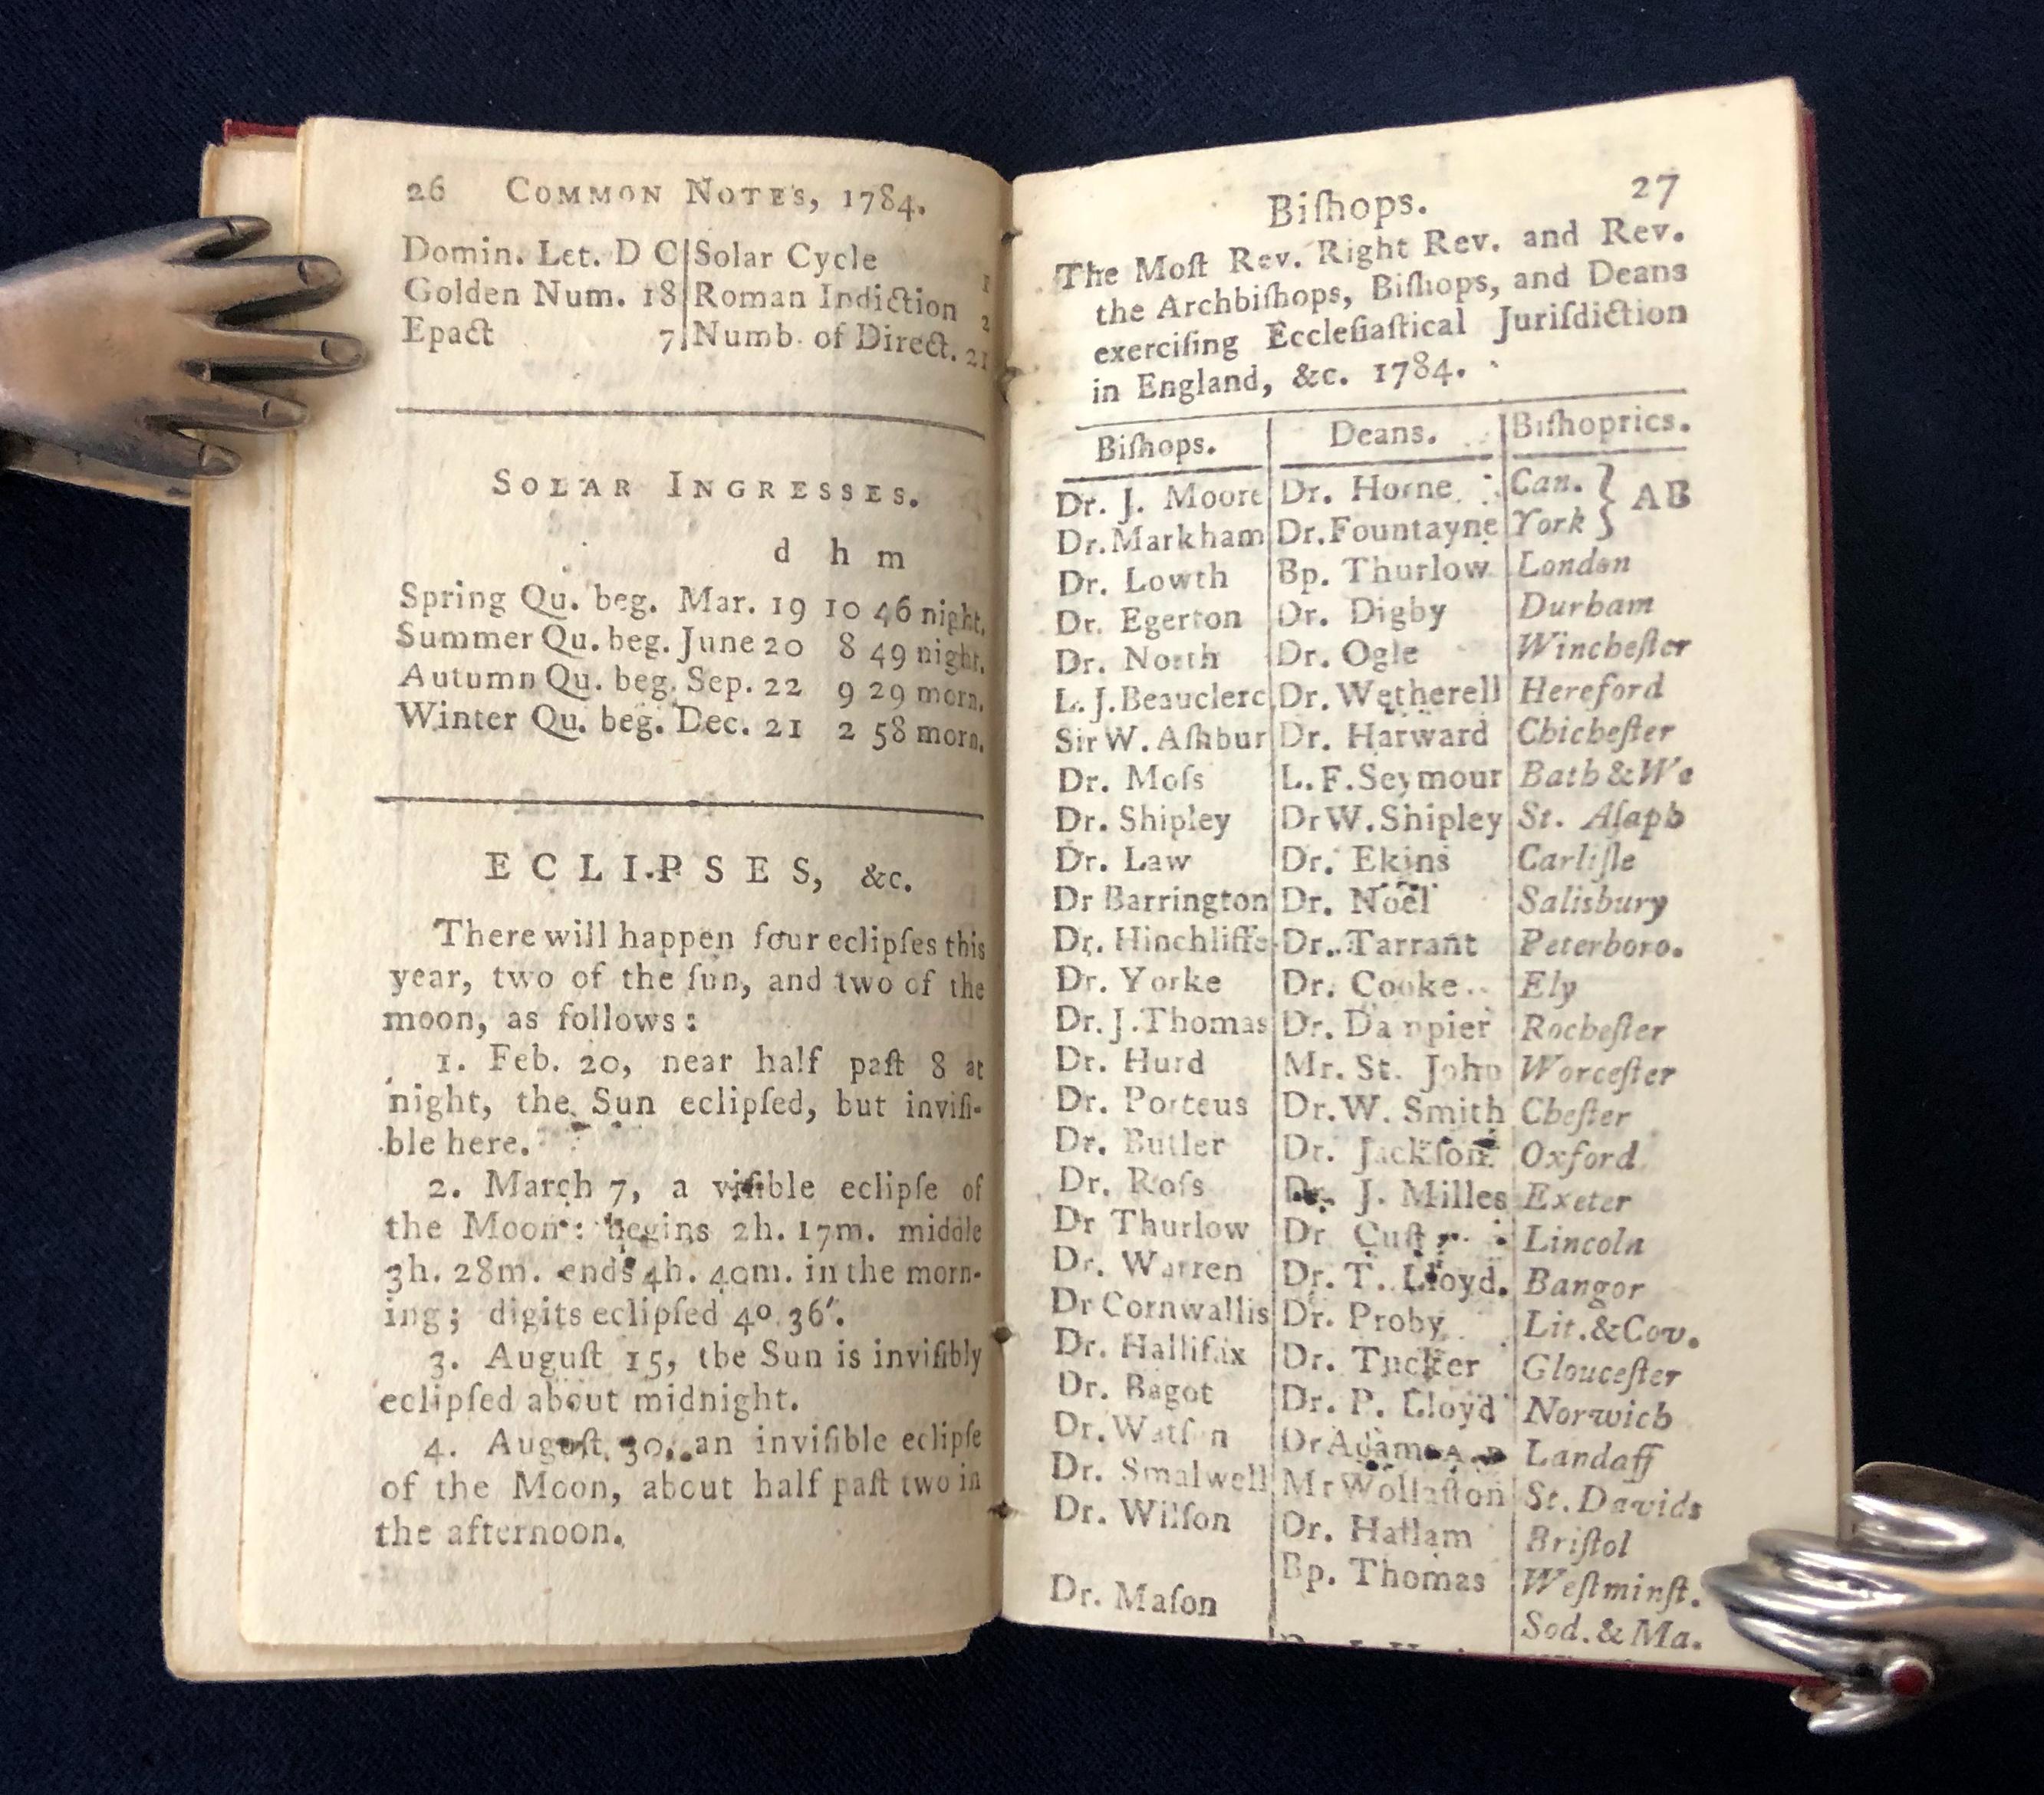 26 COMMON NOTES, 1784.
Domin. Let. D C|Solar Cycle 1
Golden Num. 18|Roman Indiction 2
Epact 7|Numb. of Direct. 21
SOLAR INGRESSES.
d h m
Spring Qu. beg. Mar. 19 10 46 night.
Summer Qu. beg. June 20 8 49 night.
Autumn Qu. beg. Sep. 22 9 29 morn.
Winter Qu. beg. Dec. 21 2 58 morn.
ECLIPSES, &c.
There will happen four eclipſes this
year, two of the ſun, and two of the
moon, as follows:
1. Feb. 20, near half paſt 8 at
night, the Sun eclipſed, but inviſi-
ble here.
2. March 7, a viſible eclipſe of
the Moon: begins 2h. 17m. middle
3h. 28m. ends 4h. 40m. in the morn-
ing; digits eclipſed 4° 36′.
3. Auguſt 15, the Sun is inviſibly
eclipſed about midnight.
4. Auguſt 30, an inviſible eclipſe
of the Moon, about half paſt two in
the afternoon.
Biſhops. 27
The Moſt Rev. Right Rev. and Rev.
the Archbiſhops, Biſhops, and Deans
exerciſing Eccleſiaſtical Juriſdiction
in England, &c. 1784.
Biſhops. | Deans. | Biſhoprics.
Dr. J. Moore | Dr. Horne | Can. } AB
Dr. Markham | Dr. Fountayne | York }
Dr. Lowth | Bp. Thurlow | London
Dr. Egerton | Dr. Digby | Durham
Dr. North | Dr. Ogle | Wincheſter
L. J. Beauclerc | Dr. Wetherell | Hereford
Sir W. Aſhbur | Dr. Harward | Chicheſter
Dr. Moſs | L. F. Seymour | Bath & We
Dr. Shipley | Dr W. Shipley | St. Aſaph
Dr. Law | Dr. Ekins | Carliſle
Dr Barrington | Dr. Noel | Salisbury
Dr. Hinchliffe | Dr. Tarrant | Peterboro.
Dr. Yorke | Dr. Cooke | Ely
Dr. J. Thomas | Dr. Dampier | Rocheſter
Dr. Hurd | Mr. St. John | Worceſter
Dr. Porteus | Dr. W. Smith | Cheſter
Dr. Butler | Dr. Jackſon | Oxford
Dr. Roſs | Dr. J. Milles | Exeter
Dr Thurlow | Dr | Lincoln
Dr. Warren | Dr. T. Lloyd. | Bangor
Dr Cornwallis | Dr. Proby | Lit. & Cov.
Dr. Hallifax | Dr. Tucker | Glouceſter
Dr. Bagot | Dr. P. Lloyd | Norwich
Dr. Watſon | Dr Adams | Landaff
Dr. Smalwell | Mr Wollaſton | St. Davids
Dr. Wilſon | Dr. Hallam | Briſtol
Bp. Thomas | Weſtminſt.
Dr. Maſon | Sod. & Ma.